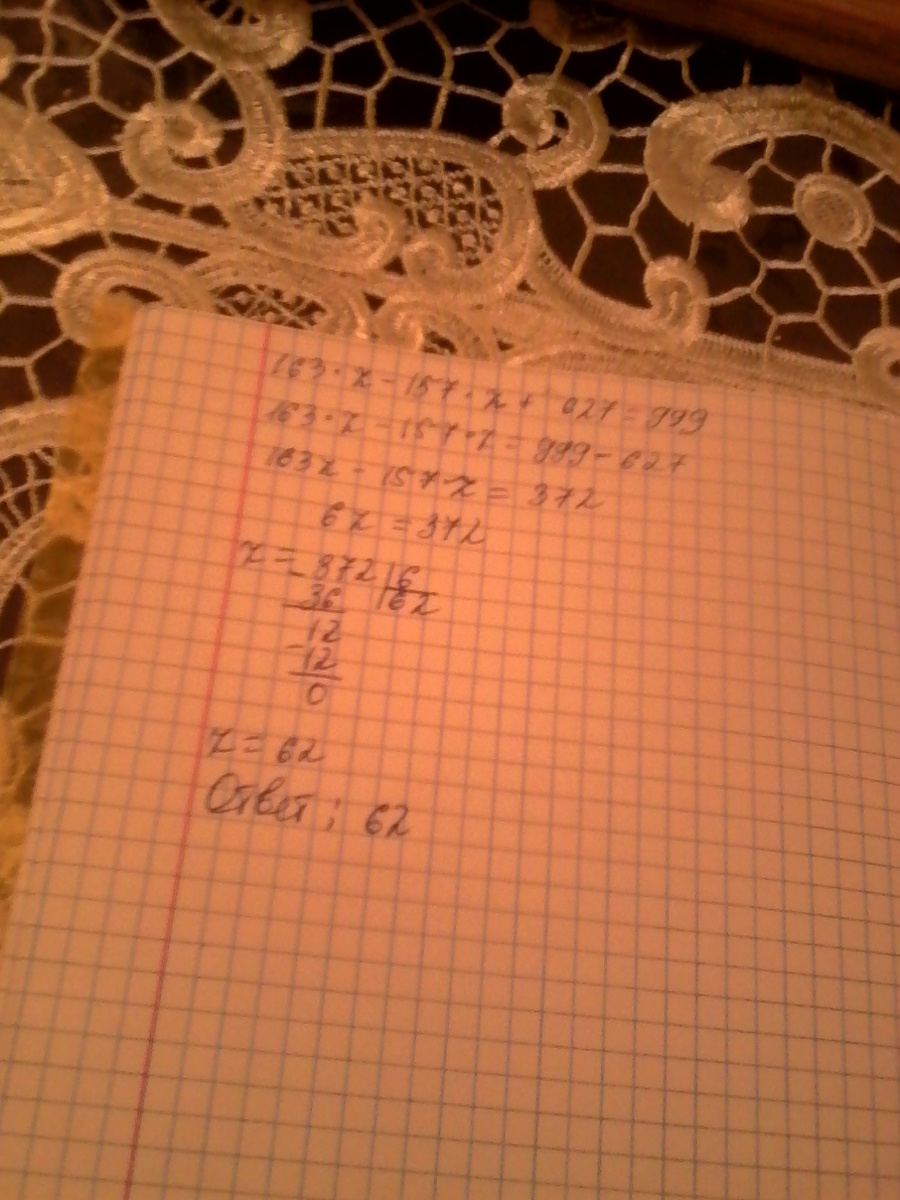 163·z - 157·z + 627 = 999
163·z - 157·z = 999 - 627
163z - 157·z = 372
6z = 372
z = 372 | 6
- 36 | 62
12
- 12
0
z = 62
Ответ; 62